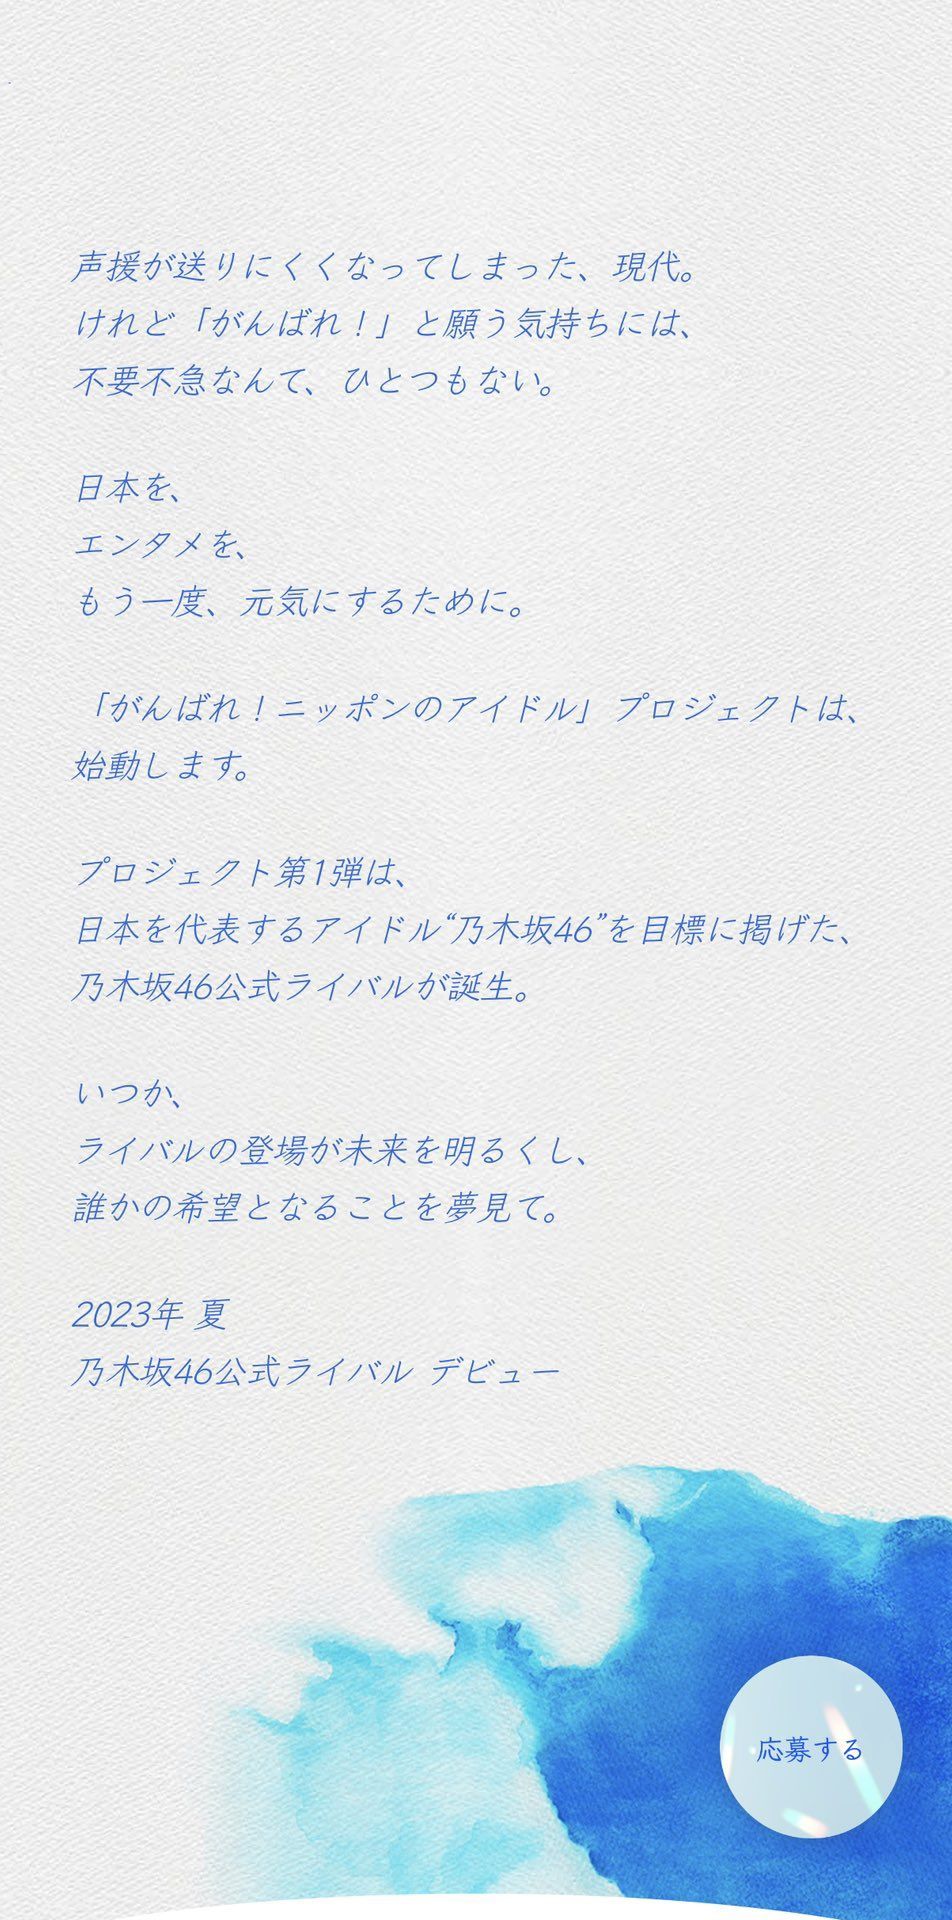 声援が送りにくくなってしまった、現代。
けれど「がんばれ！」と願う気持ちには、
不要不急なんて、ひとつもない。
日本を、
エンタメを、
もう一度、元気にするために。
「がんばれ！ニッポンのアイドル」プロジェクトは、
始動します。
プロジェクト第1弾は、
日本を代表するアイドル“乃木坂46”を目標に掲げた、
乃木坂46公式ライバルが誕生。
いつか、
ライバルの登場が未来を明るくし、
誰かの希望となることを夢見て。
2023年 夏
乃木坂46公式ライバル デビュー
応募する